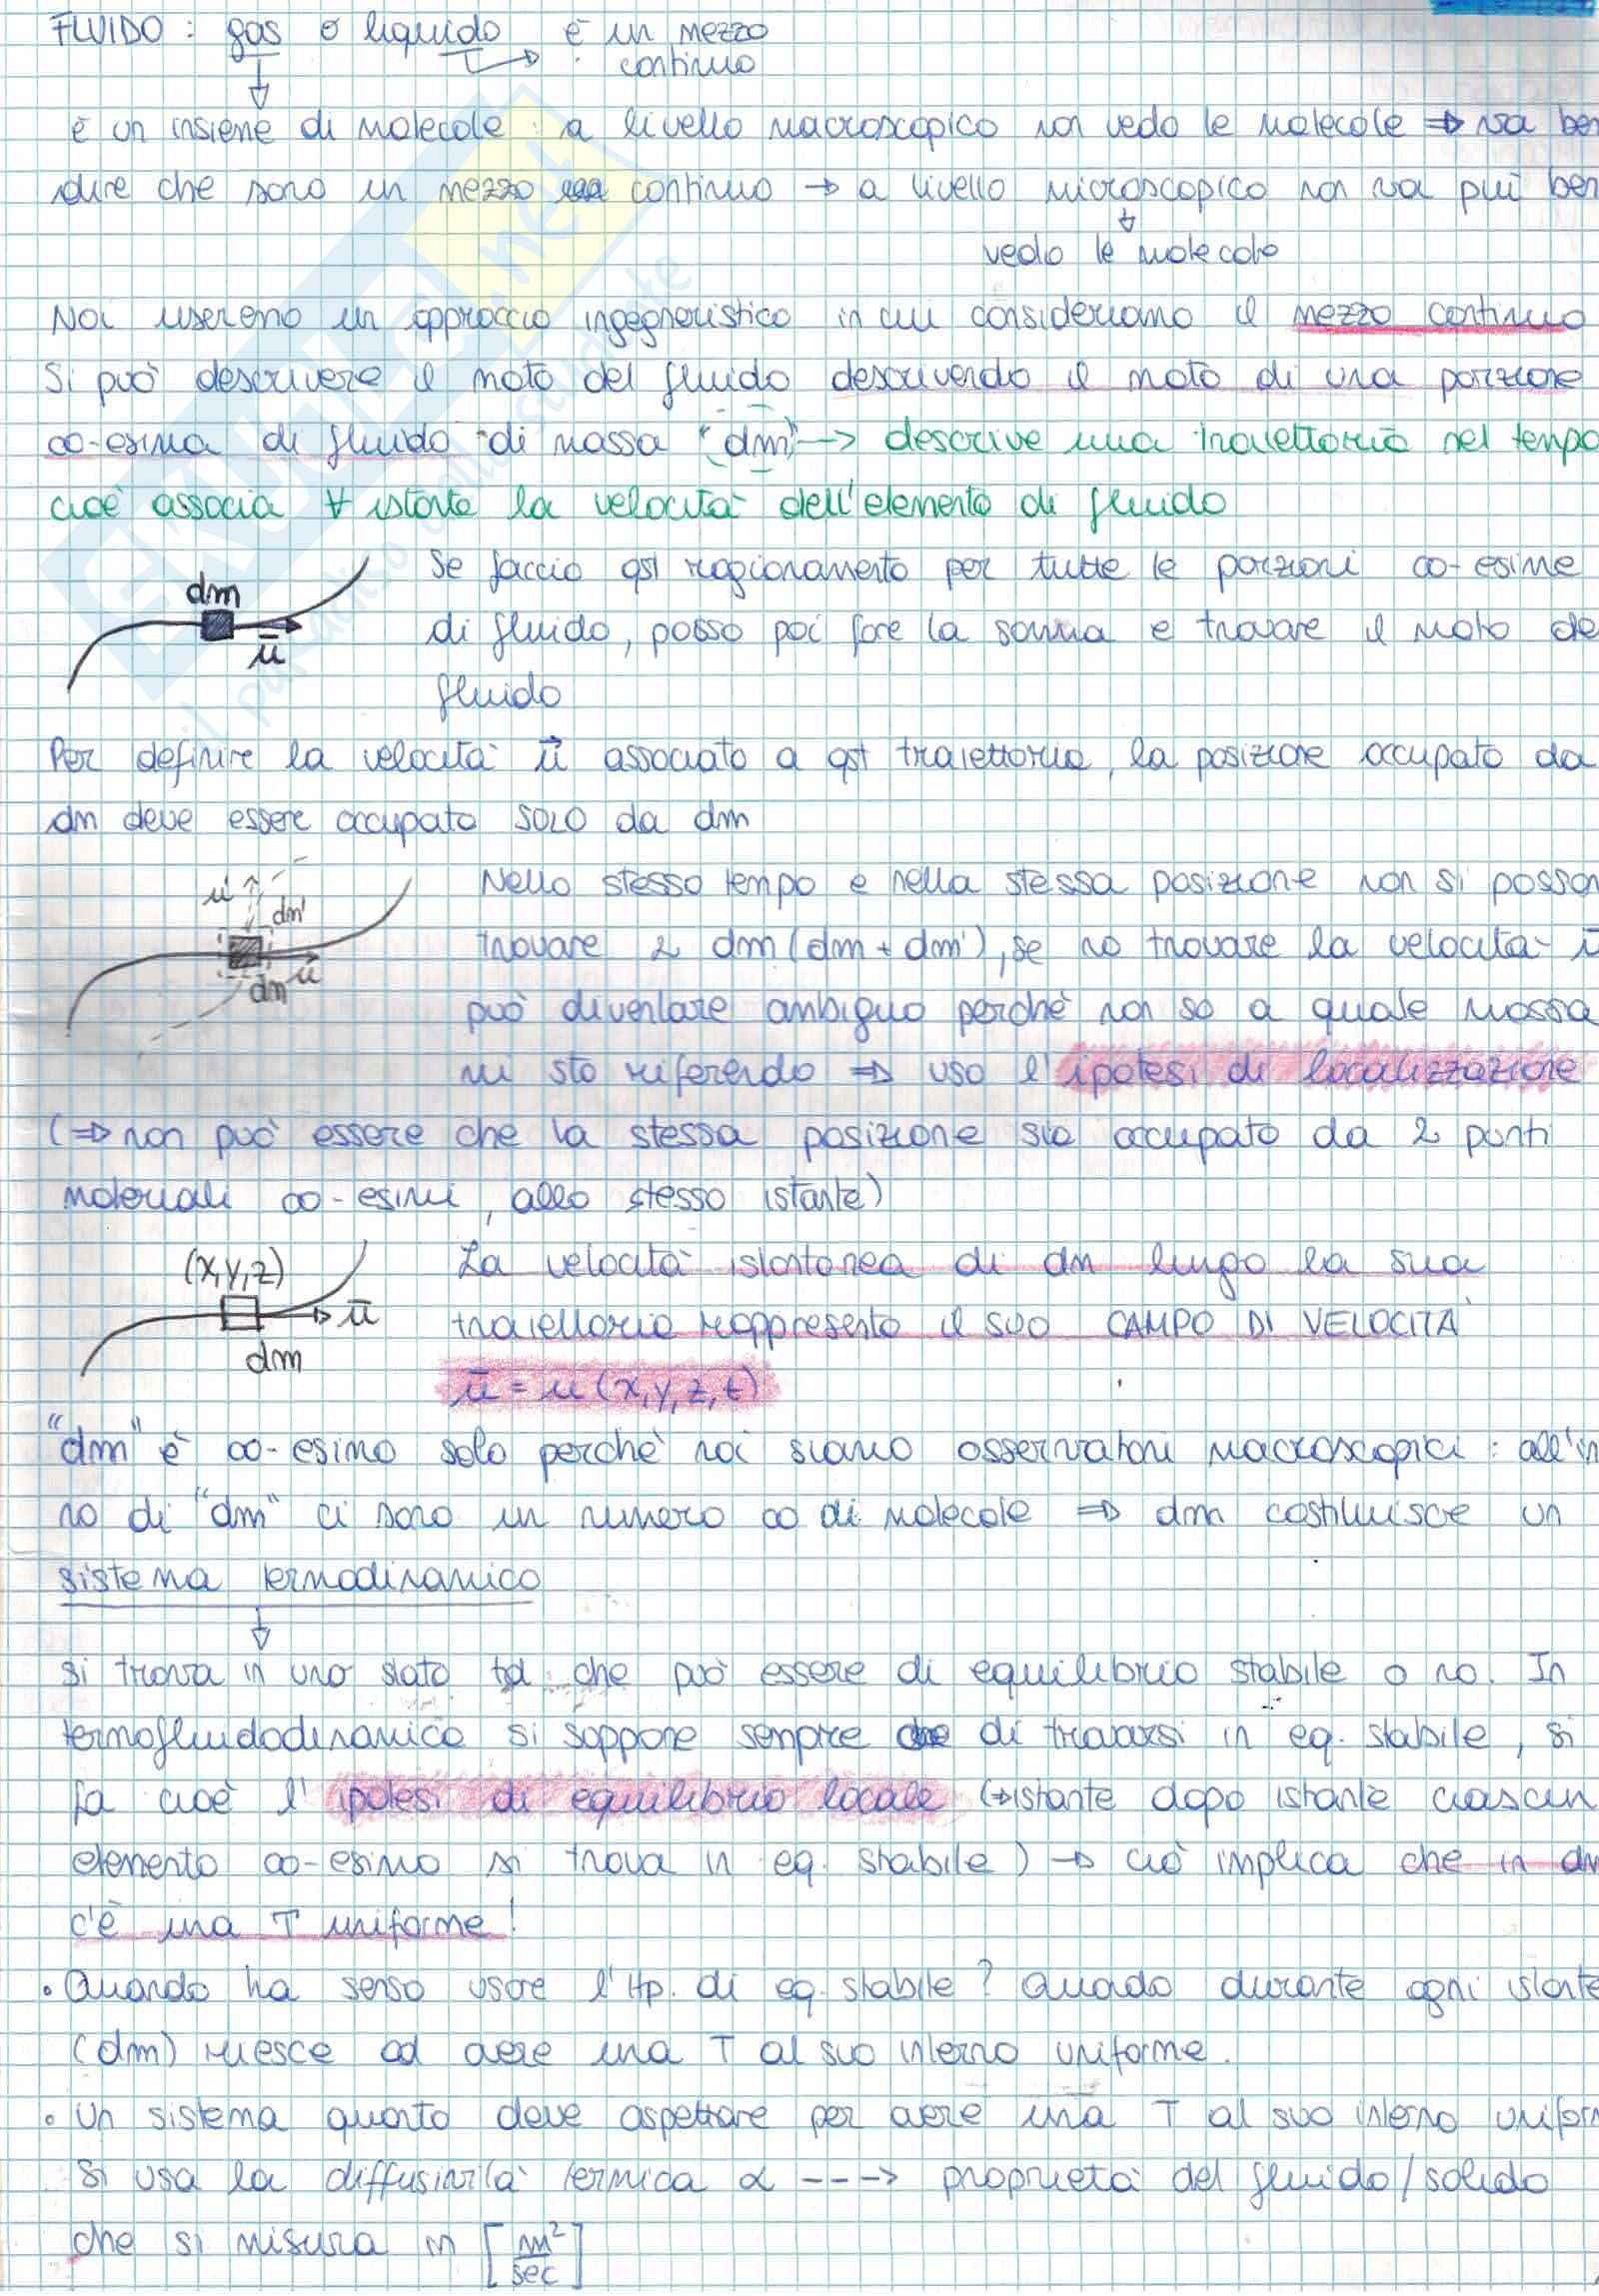 FLUIDO : gas o liquido è un mezzo
continuo
è un insieme di molecole : a livello macroscopico non vedo le molecole => va ben
dire che sono un mezzo continuo → a livello microscopico non va più ben
vedo le molecole
Noi useremo un approccio ingegneristico in cui consideriamo il mezzo continuo
Si può descrivere il moto del fluido descrivendo il moto di una porzione
∞-esima di fluido di massa "dm" → descrive una traiettoria nel tempo
cioè associa ∀ istante la velocità dell'elemento di fluido
dm
ū
Se faccio qst ragionamento per tutte le porzioni ∞-esime
di fluido, posso poi fare la somma e trovare il moto de
fluido
Per definire la velocità u⃗ associato a qst traiettoria, la posizione occupata da
dm deve essere occupata SOLO da dm
u'
dm'
dm
u
Nello stesso tempo e nella stessa posizione non si posson
trovare 2 dm (dm + dm'), se no trovare la velocità ū
può diventare ambiguo perché non so a quale massa
mi sto riferendo => uso l'ipotesi di localizzazione
(=> non può essere che la stessa posizione sia occupata da 2 punti
materiali ∞-esimi, allo stesso istante)
(x,y,z)
ū
dm
La velocità istantanea di dm lungo la sua
traiettoria rappresenta il suo CAMPO DI VELOCITÀ
ū = u (x,y,z,t)
"dm" è ∞-esimo solo perché noi siamo osservatori macroscopici : all'in
no di "dm" ci sono un numero ∞ di molecole => dm costituisce un
sistema termodinamico
si trova in uno stato td. che può essere di equilibrio stabile o no. In
termofluidodinamica si suppone sempre di trovarsi in eq. stabile, si
fa cioè l'ipotesi di equilibrio locale (→ istante dopo istante ciascun
elemento ∞-esimo si trova in eq. stabile) → ciò implica che in dm
c'è una T uniforme!
• Quando ha senso usare l'Hp. di eq. stabile? Quando durante ogni istante
(dm) riesce ad avere una T al suo interno uniforme.
• Un sistema quanto deve aspettare per avere una T al suo interno unifor
Si usa la diffusività termica α ---> proprietà del fluido/solido
che si misura in [m²/sec]
SKUOLA.net
il paradiso dello studente